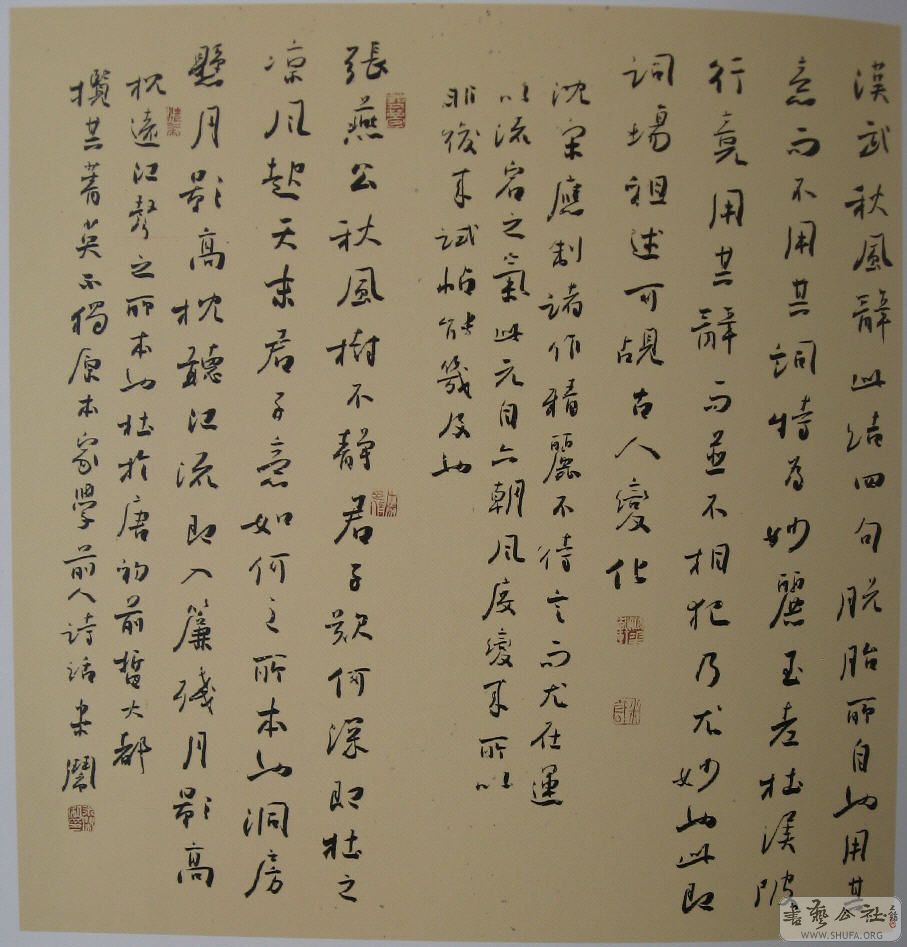 漢武秋風辭此結四句脫胎所自也用其
意而不用其詞特為妙麗至老杜渼陂
行竟用其辭而並不相犯乃尤妙也此即
詞場祖述可覘古人變化
沈宋應制諸作精麗不待言而尤在運
以流宕之氣此元自六朝風度變來所以
非後來試帖能幾及也
張燕公秋風樹不靜君子歎何深即杜之
涼風起天末君子意如何之所本也洞房
懸月影高枕聽江流即入簾殘月影高
枕遠江聲之所本也杜於唐初前哲大都
攬其菁英不獨原本家學前人詩話未闡
書藝公社
WWW.SHUFA.ORG